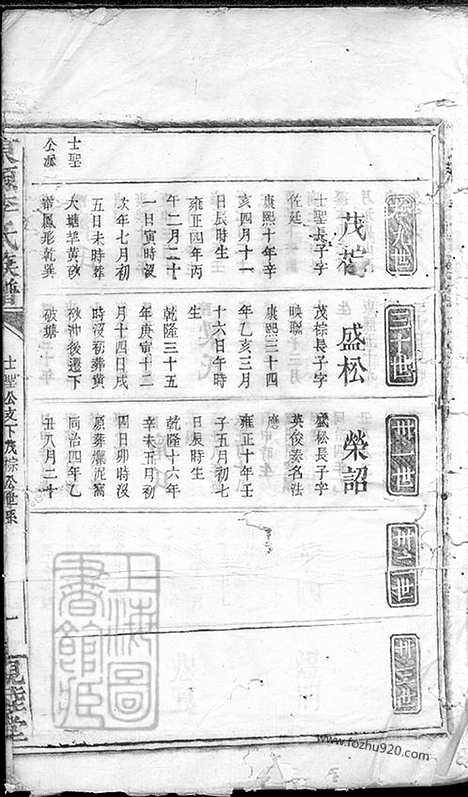 廿九世
茂棕
士聖長子字
佐廷
康熙十年辛
亥四月十一
日辰時生
雍正四年丙
午二月二十
一日寅時沒
次年七月初
五日未時葬
大塘黃砂
鳳形乾巽
士聖
公派
三十世
盛松
茂棕長子字
映聯
康熙三十四
年乙亥三月
十六日午時
生
乾隆三十五
年庚寅十二
月十四日戌
時沒初葬黃
砂沖後遷下
破塘
卅一世
榮詔
盛松長子字
英俊奏名法
應
雍正十年壬
子五月初七
日辰時生
乾隆十六年
辛未五月初
四日卯時沒
原葬泥窩
同治四年乙
丑八月二十
卅二世
卅三世
源李氏族譜
士聖公支下茂棕公世系
一
睦堂
上海圖書館藏
www.fozhu920.com